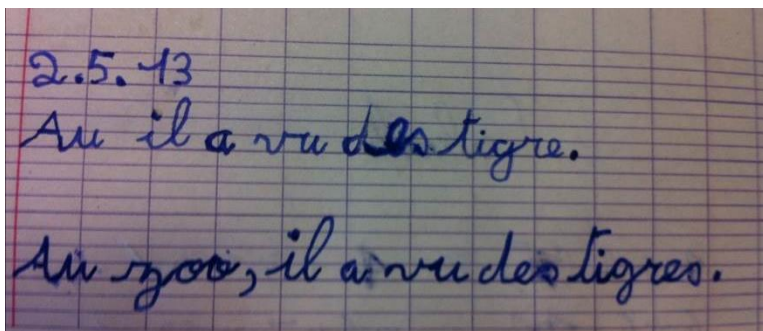 2.5.13
Au il a vu des tigre.
Au zoo, il a vu des tigres.